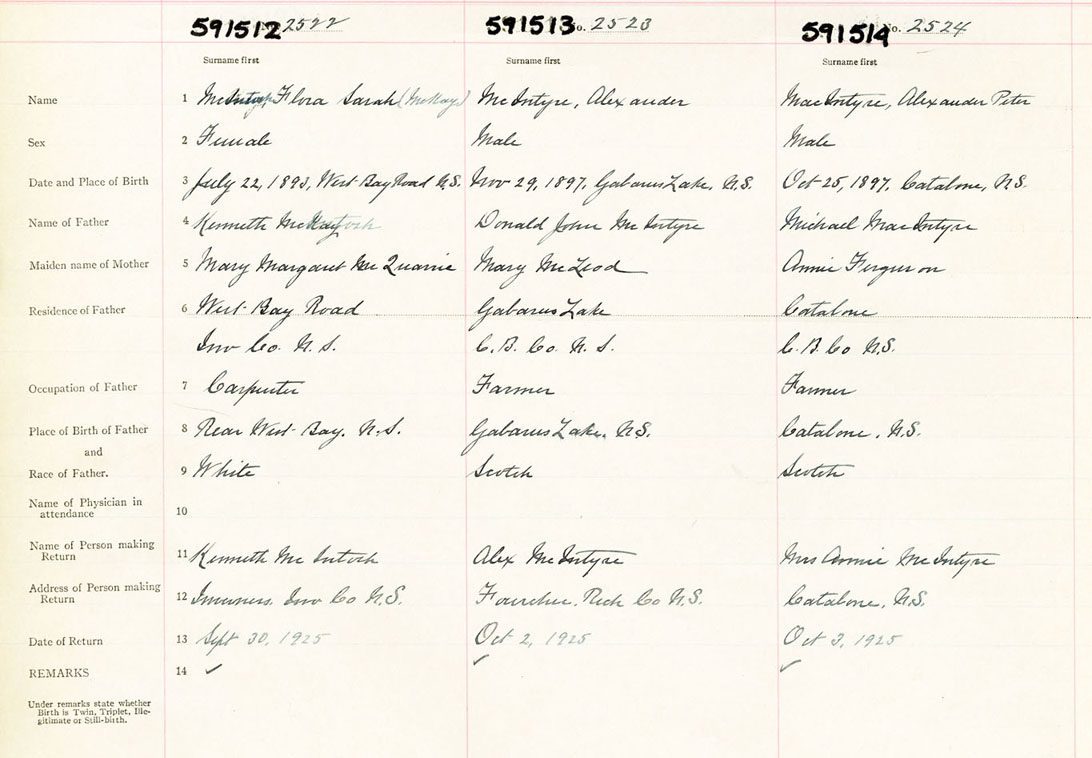 591512 2522 591513 o. 2523 591514 o. 2524
Surname first Surname first Surname first
Name 1 McIntosh, Flora Sarah (McKay) McIntyre, Alexander MacIntyre, Alexander Peter
Sex 2 Female Male Male
Date and Place of Birth 3 July 22, 1893, West Bay Road N.S. Nov 29, 1897, Gabarus Lake, N.S. Oct 25, 1897, Catalone, N.S.
Name of Father 4 Kenneth Donald John McIntyre Michael MacIntyre
Maiden name of Mother 5 Mary Margaret McQuarrie Mary McLeod Annie Ferguson
Residence of Father 6 West Bay Road Gabarus Lake Catalone
Inv Co. N. S. C. B. Co. N. S. C. B. Co N.S.
Occupation of Father 7 Carpenter Farmer Farmer
Place of Birth of Father 8 Rear West Bay. N.S. Gabarus Lake, N.S. Catalone, N.S.
and
Race of Father. 9 White Scotch Scotch
Name of Physician in
attendance 10
Name of Person making
Return 11 Kenneth McIntosh Alex McIntyre Mrs Annie McIntyre
Address of Person making
Return 12 Inverness, Inv Co N.S. Fourchu, Rich Co N.S. Catalone, N.S.
Date of Return 13 Sept 30, 1925 Oct 2, 1925 Oct 3, 1925
REMARKS 14
Under remarks state whether
Birth is Twin, Triplet, Ille-
gitimate or Still-birth.